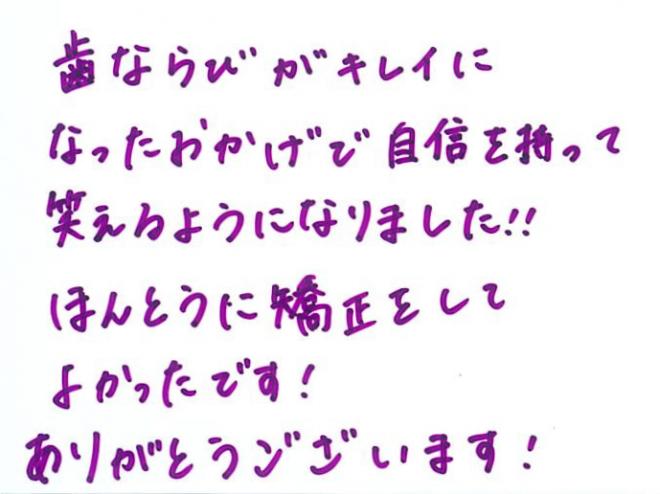 歯ならびがキレイに
なったおかげで自信を持って
笑えるようになりました!!
ほんとうに矯正をして
よかったです!
ありがとうございます!